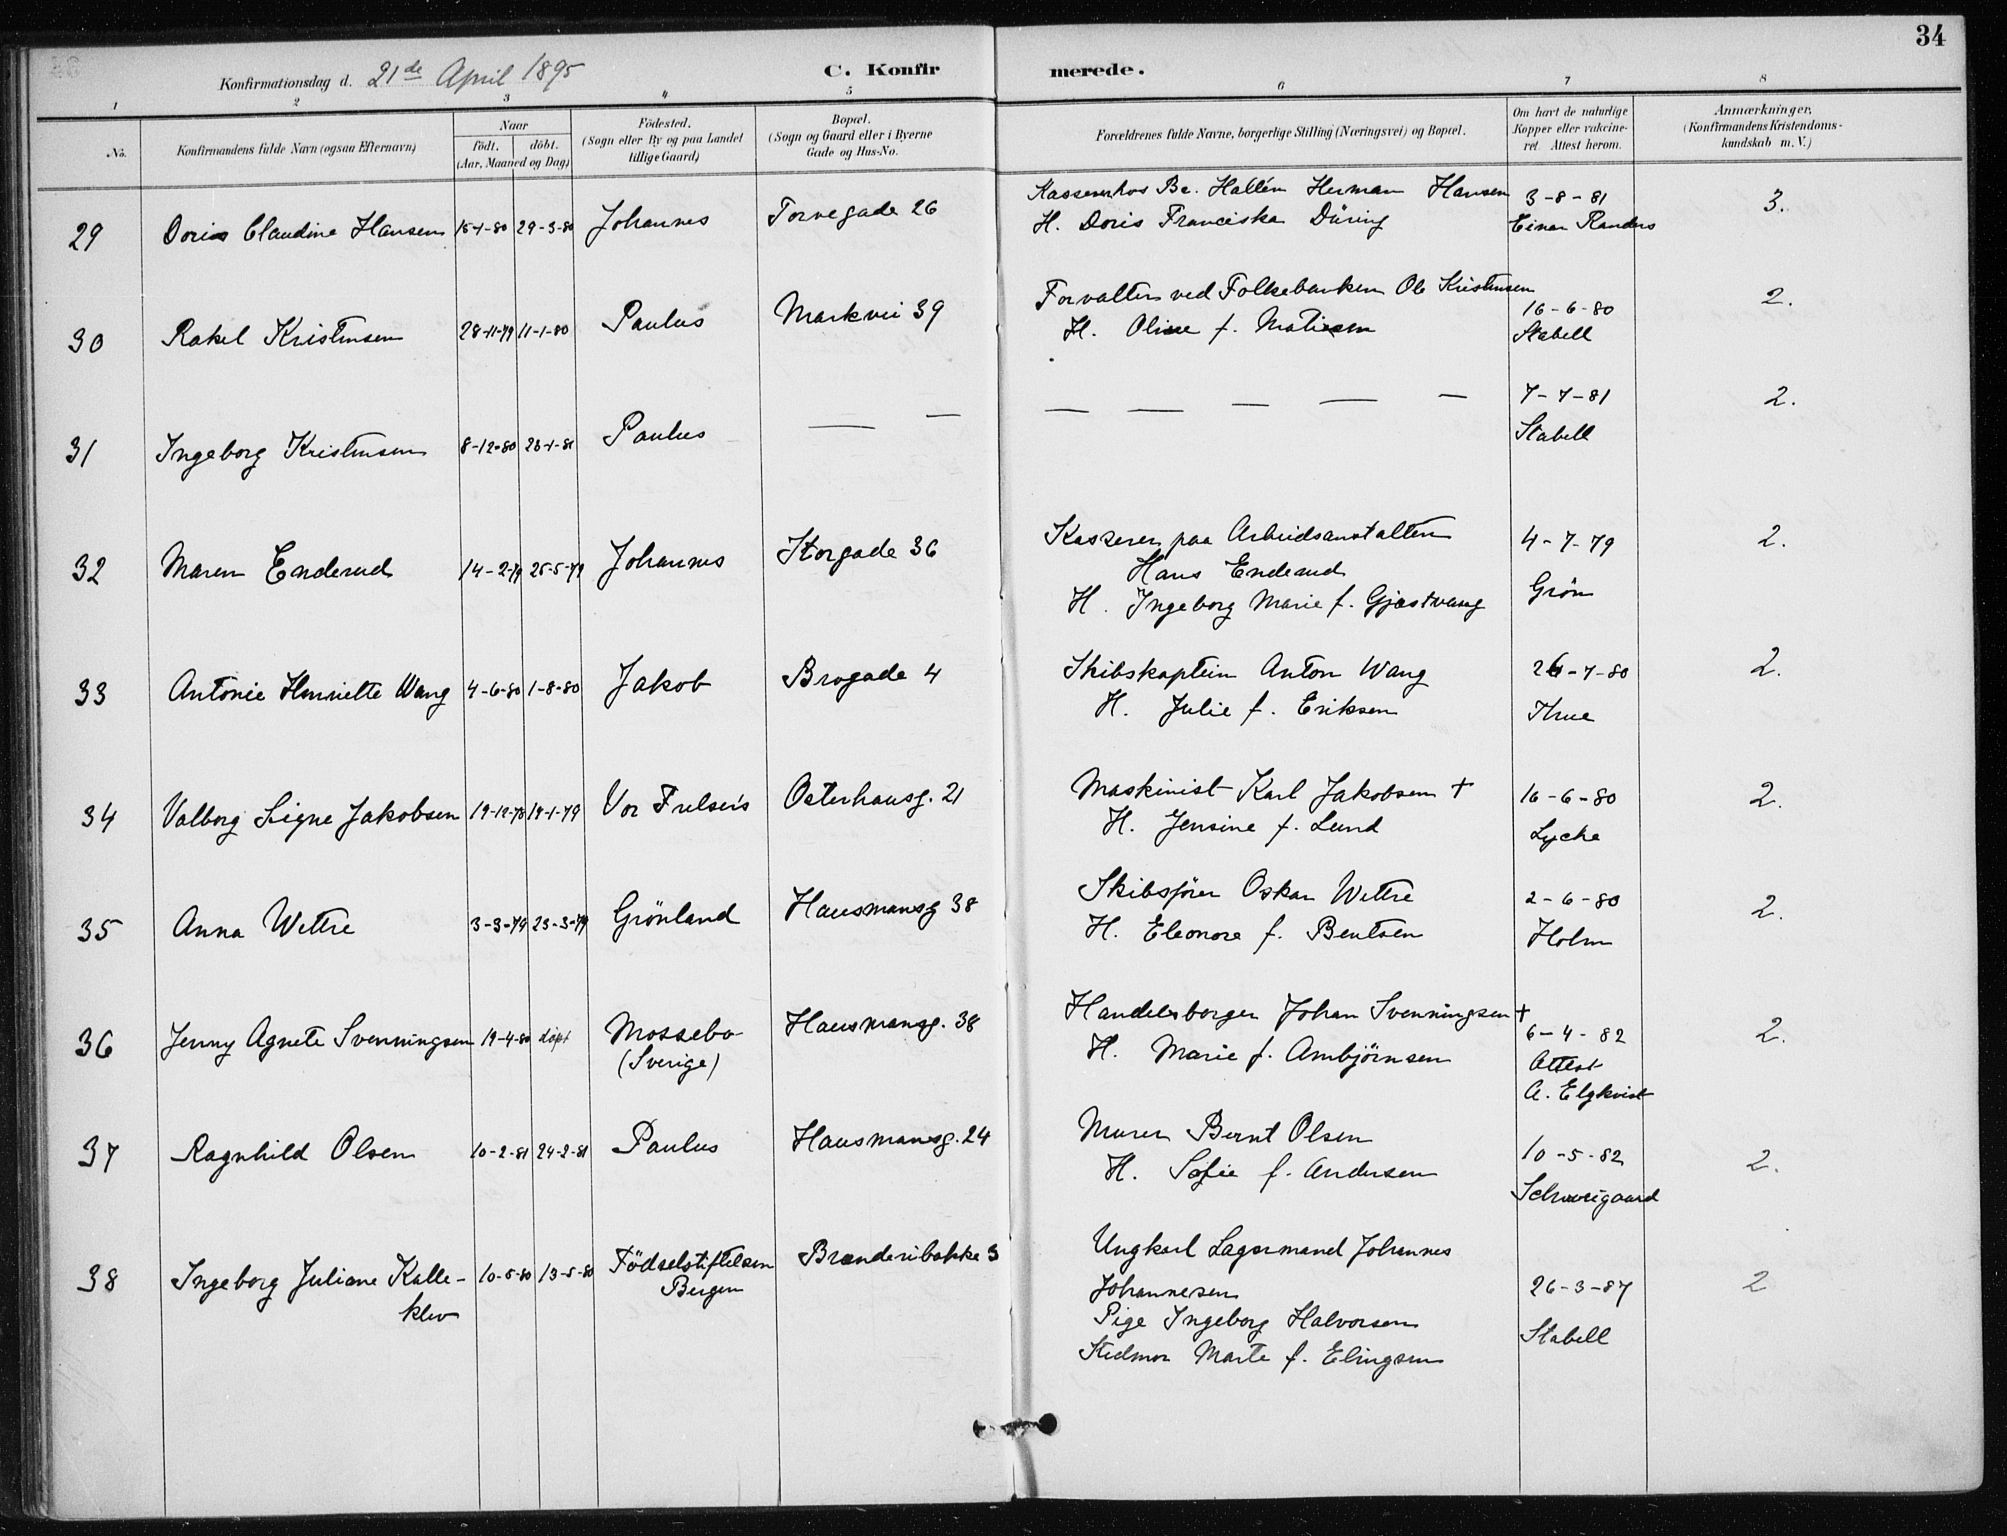 34
Konfirmationsdag d. 21de April 1895 C. Konfirmerede.
1 2 3 4 5 6 7 8
No. Konfirmandens fulde Navn (ogsaa Efternavn) Naar födt. döbt. (Aar, Maaned og Dag) Födested. (Sogn eller By og paa Landet tillige Gaard) Bopæl. (Sogn og Gaard eller i Byerne Gade og Hus-No. Forældrenes fulde Navne, borgerlige Stilling (Næringsvei) og Bopæl. Om havt de naturlige Kopper eller vakcineret. Attest herom. Anmærkninger, (Konfirmandens Kristendomskundskab m. V.)
29 Doris Claudine Hansen 15-1-80 29-3-80 Johannes Torvegade 26 Kasserer hos Br. Hallén Herman Hansen 3-8-81 3.
H. Doris Franciska Düring Einar Randers
30 Rakel Kristensen 28-11-79 11-1-80 Paulus Markvei 39 Forvalter ved Folkebanken Ole Kristensen 16-6-80 2.
H. Oline f. Matiesen Stabell
31 Ingeborg Kristensen 8-12-80 23-1-81 Paulus — — — — — — — 7-7-81 2.
Stabell
32 Maren Enderud 14-2-79 25-5-79 Johannes Storgade 36 Kasserer paa Arbeidsanstalten 4-7-79 2.
Hans Enderud
H. Ingeborg Marie f. Gjæstvang Grön
33 Antonie Henriette Wang 4-6-80 1-8-80 Jakob Brogade 4 Skibskaptein Anton Wang 26-7-80 2.
H. Julie f. Eriksen Thue
34 Valborg Signe Jakobsen 19-12-78 19-1-79 Vor Frelsers Osterhausg. 21 Maskinist Karl Jakobsen + 16-6-80 2.
H. Jensine f. Lund Lyche
35 Anna Wettre 3-3-79 23-3-79 Grönland Hausmansg 38 Skibsförer Oskar Wettre 2-6-80 2.
H. Eleonore f. Bentsen Holm
36 Jenny Agnete Svenningsen 19-4-80 döpt Mossebo Hausmansg. 38 Handelsborger Johan Svenningsen + 6-4-82 2.
(Sverige) H. Marie f. Ambjörnsen Attest
A. Elgkvist
37 Ragnhild Olsen 10-2-81 24-2-81 Paulus Hausmansg. 24 Murer Bernt Olsen 10-5-82 2.
H. Sofie f. Andersen Schweigaard
38 Ingeborg Juliane Kalle- 10-5-80 13-5-80 Födselstiftelsen Brenderibakke 3 Ungkarl Lagermand Johannes
klev Bergen Johannesen 26-3-87 2
Pige Ingeborg Halvorsen Stabell
Stedmor Marte f. Elingsen